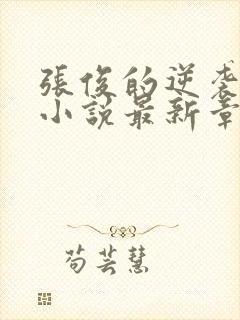 張俊的逆袭
小說最新章
苟芸慧